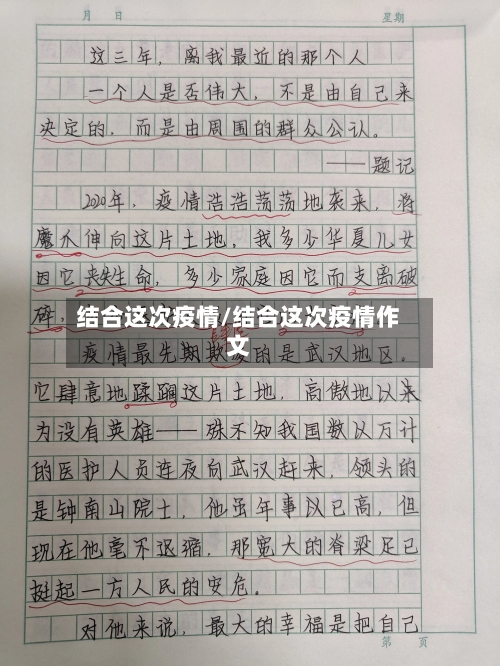 月 日 星期
这三年，离我最近的那个人
一个人是否伟大，不是由自己来
决定的，而是由周围的群众公认。
——题记
2020年，疫情浩浩荡荡地袭来，将
魔爪伸向这片土地，我多少华夏儿女
因它丧失生命，多少家庭因它而支离破
碎，
结合这次疫情/结合这次疫情作
文
疫情最先期欺 的是武汉地区。
它肆意地蹂躏这片土地，高傲地以来
为没有英雄——殊不知我国数以万计
的医护人员连夜向武汉赶来，领头的
是钟南山院士，他虽年事以已高，但
现在他毫不退缩，那宽大的脊梁足已
挺起一方人民的安危。
对他来说，最大的幸福是把自己
第 页